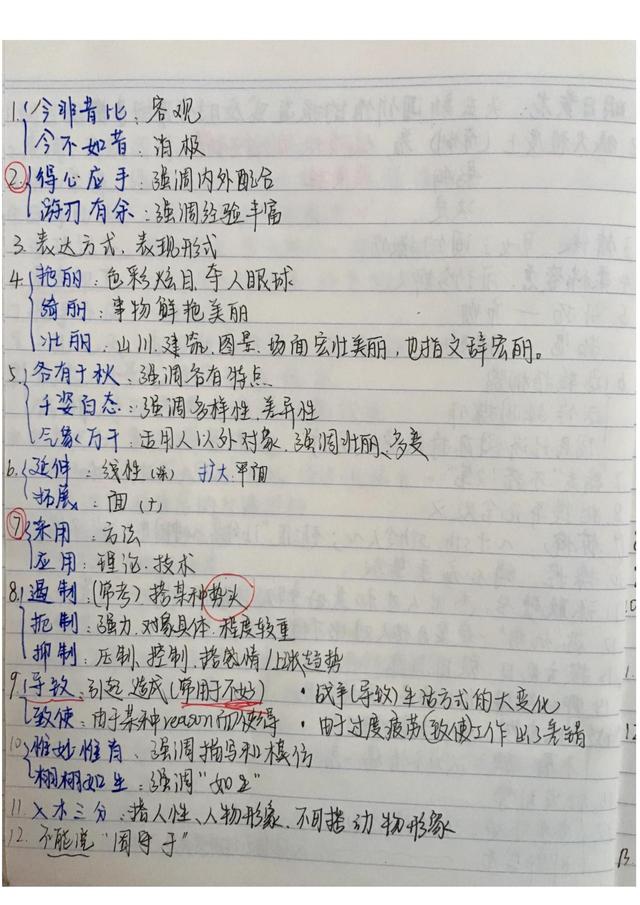 1. 今非昔比：客观
今不如昔：消极
② 得心应手：强调内外配合
游刃有余：强调经验丰富
3. 表达方式、表现形式
4. 艳丽：色彩炫目、夺人眼球
绮丽：事物鲜艳美丽
壮丽：山川、建筑、图景、场面宏壮美丽，也指文辞宏丽。
5. 各有千秋：强调各有特点
千姿百态：强调多样性、差异性
气象万千：适用人以外对象、强调壮丽、多变
6. 延伸：线性 扩大 平面
拓展：面
⑦ 采用：方法
应用：理论、技术
8. 遏制：(常考) 指某种势头
扼制：强力、对象具体、程度较重
抑制：压制、控制、指感情/上涨趋势
9. 导致：引起、造成(常用于不好) ·战争(导致)生活方式的大变化
致使：由于某种reason而使得 ·由于过度疲劳(致使)工作出了差错
10. 惟妙惟肖：强调描写和模仿
栩栩如生：强调"如生"
11. 入木三分：指人性、人物形象、不可指动物形象
12. 不能说"固守于"
13.